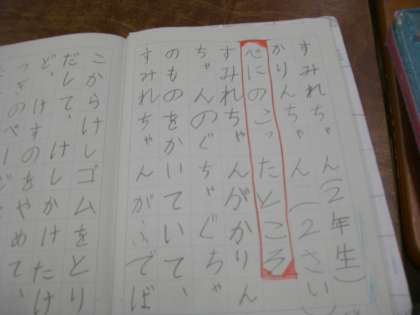 すみれちゃん(2年生)
かりんちゃん(2さい)
心にのこったところ
すみれちゃんがかりん
ちゃんのぐちゃぐちゃ
のものをかいていて、
すみれちゃんが
こからけしゴムをとり
だして、けし
ど、けすのをやめて、